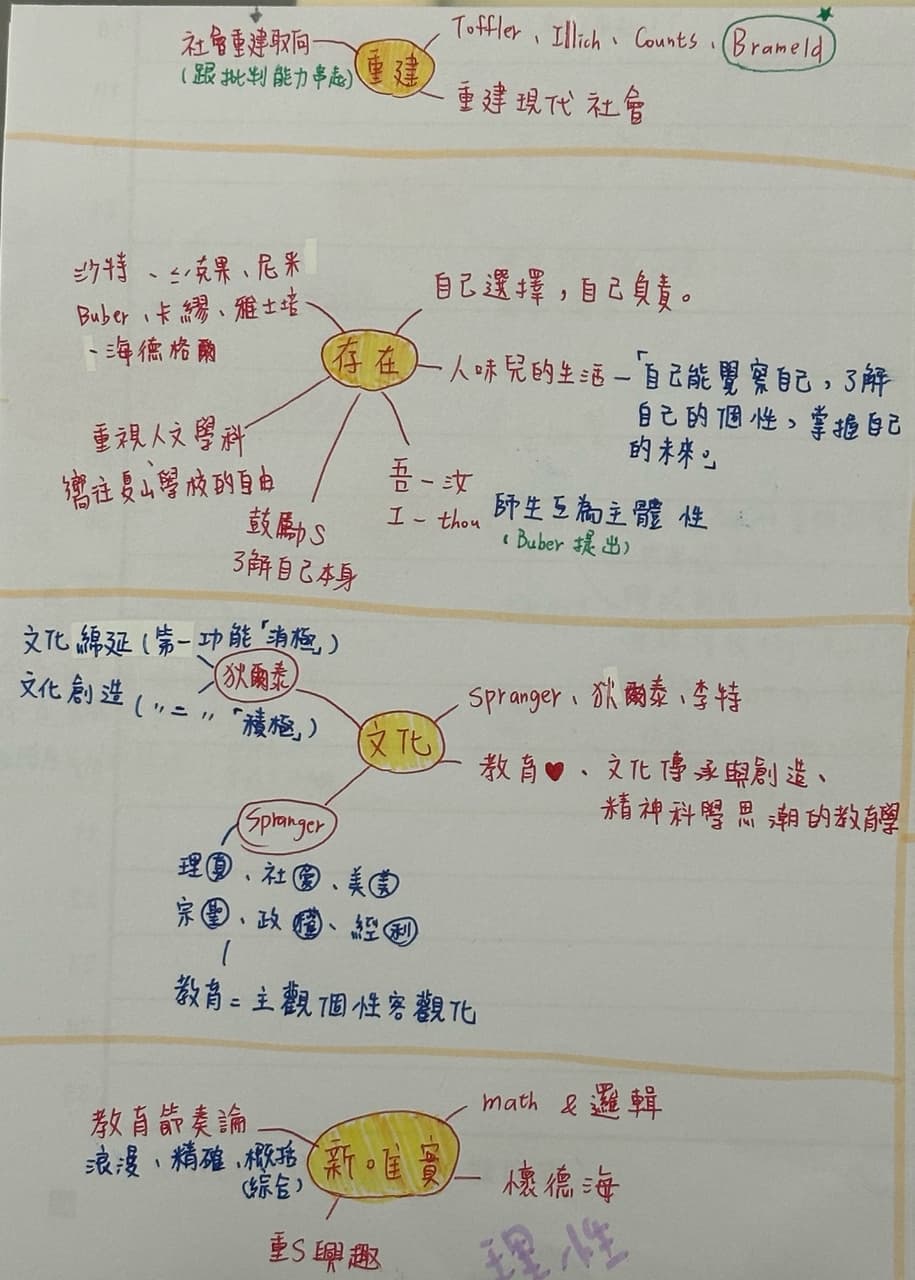 社會重建取向
(跟批判能力串起)
重建
Toffler、Illich、Counts、Brameld
重建現代社會
沙特、齊克果、尼采
Buber、卡繆、雅士培
、海德格爾
存在
自己選擇，自己負責。
人味兒的生活－「自己能覺察自己，了解
自己的個性，掌握自己
的未來。」
重視人文學科
嚮往夏山學校的自由
鼓勵S
了解自己本身
吾－汝
I－thou
師生互為主體性
(Buber提出)
文化綿延(第一功能「消極」)
文化創造(〃二〃「積極」)
狄爾泰
文化
Spranger、狄爾泰、李特
教育♥、文化傳承與創造、
精神科學思潮的教育學
Spranger
理真、社愛、美美
宗聖、政權、經利
教育=主觀個性客觀化
教育節奏論
浪漫、精確、概括
(綜合)
新唯實
math & 邏輯
懷德海
重S興趣
理性